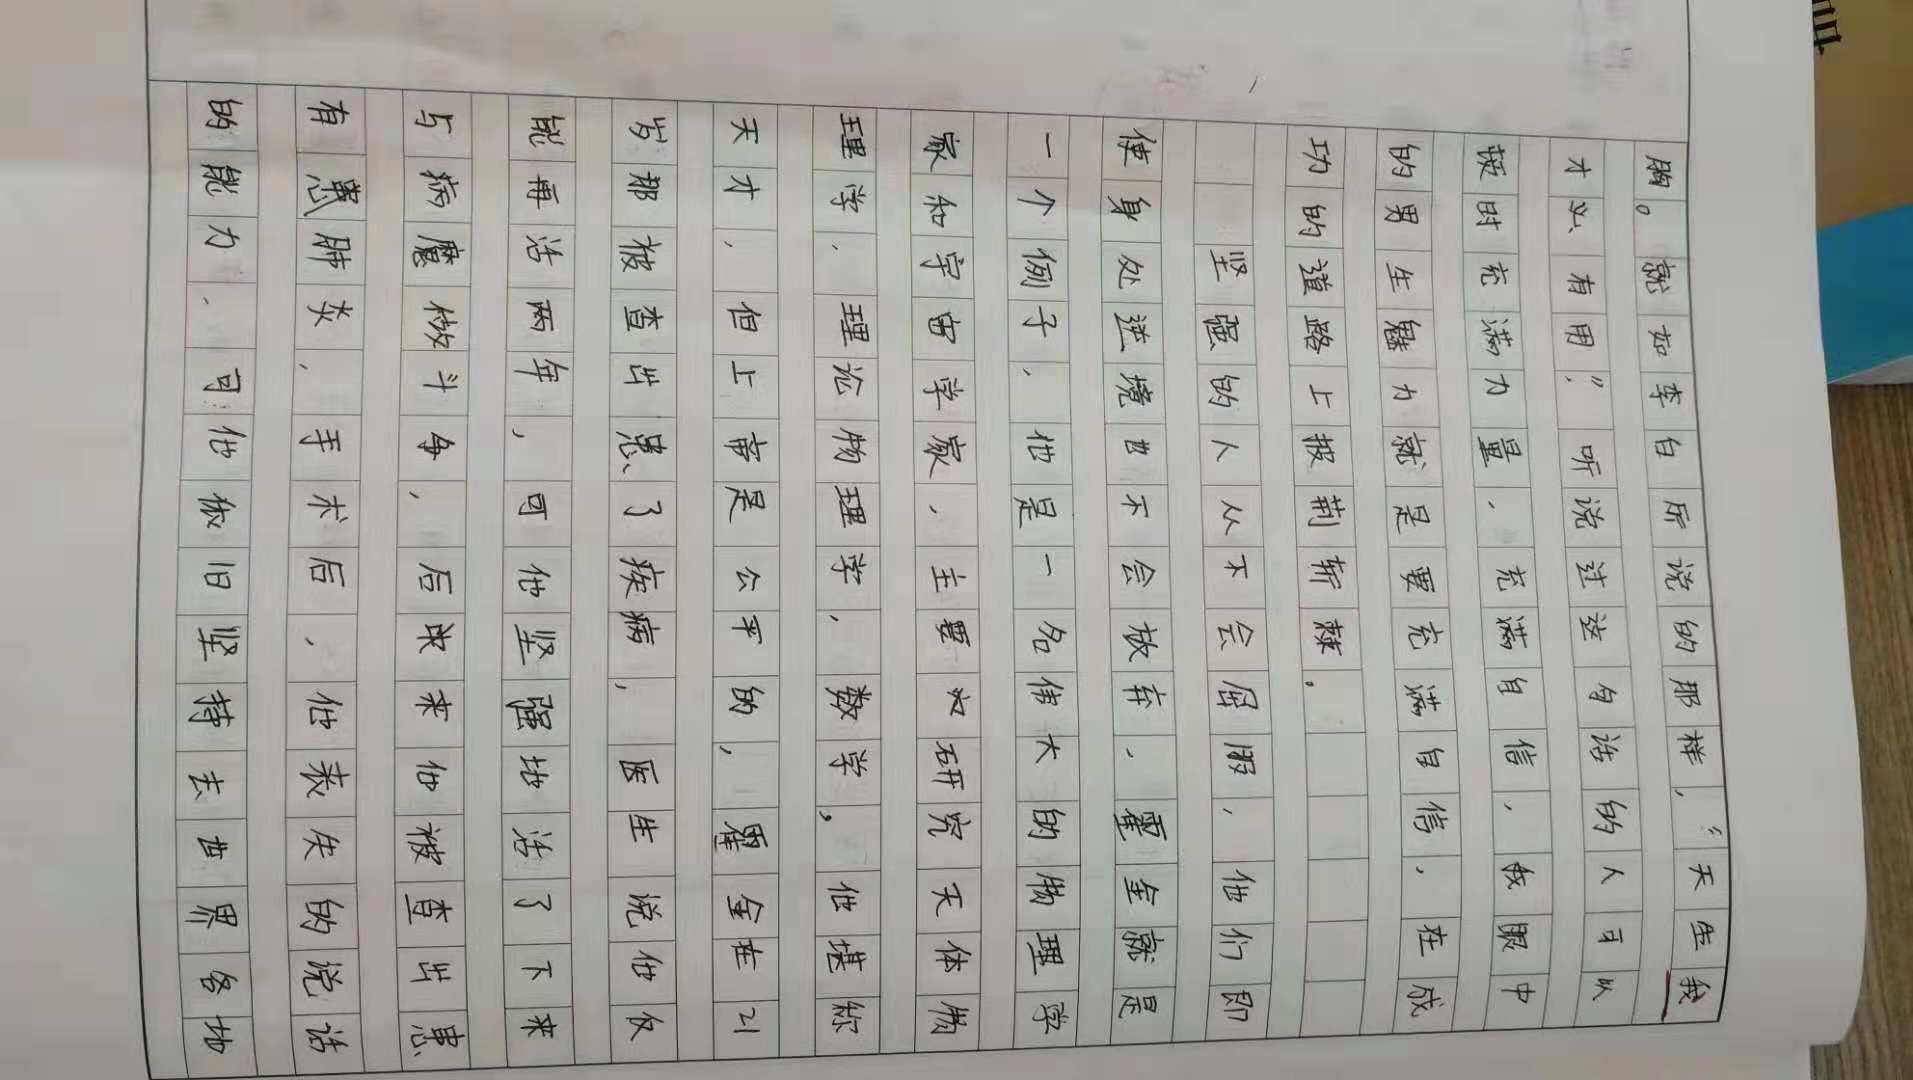 胸。就如李白所说的那样，“天生我
才必有用”，听说过这句话的人可以
顿时充满力量，充满自信，我眼中
的男生魅力就是要充满自信，在成
功的道路上披荆斩棘。
坚强的人从不会屈服，他们即
使身处逆境也不会放弃，霍金就是
一个例子，他是一名伟大的物理学
家和宇宙学家，主要以研究天体物
理学、理论物理学，数学。他堪称
天才，但上帝是公平的，霍金在21
岁那被查出患了疾病，医生说他仅
能再活两年，可他坚强地活了下来
与病魔做斗争，后来来他被查出患
有患肺炎，手术后，他丧失的说话
的能力、可他依旧坚持去世界各地